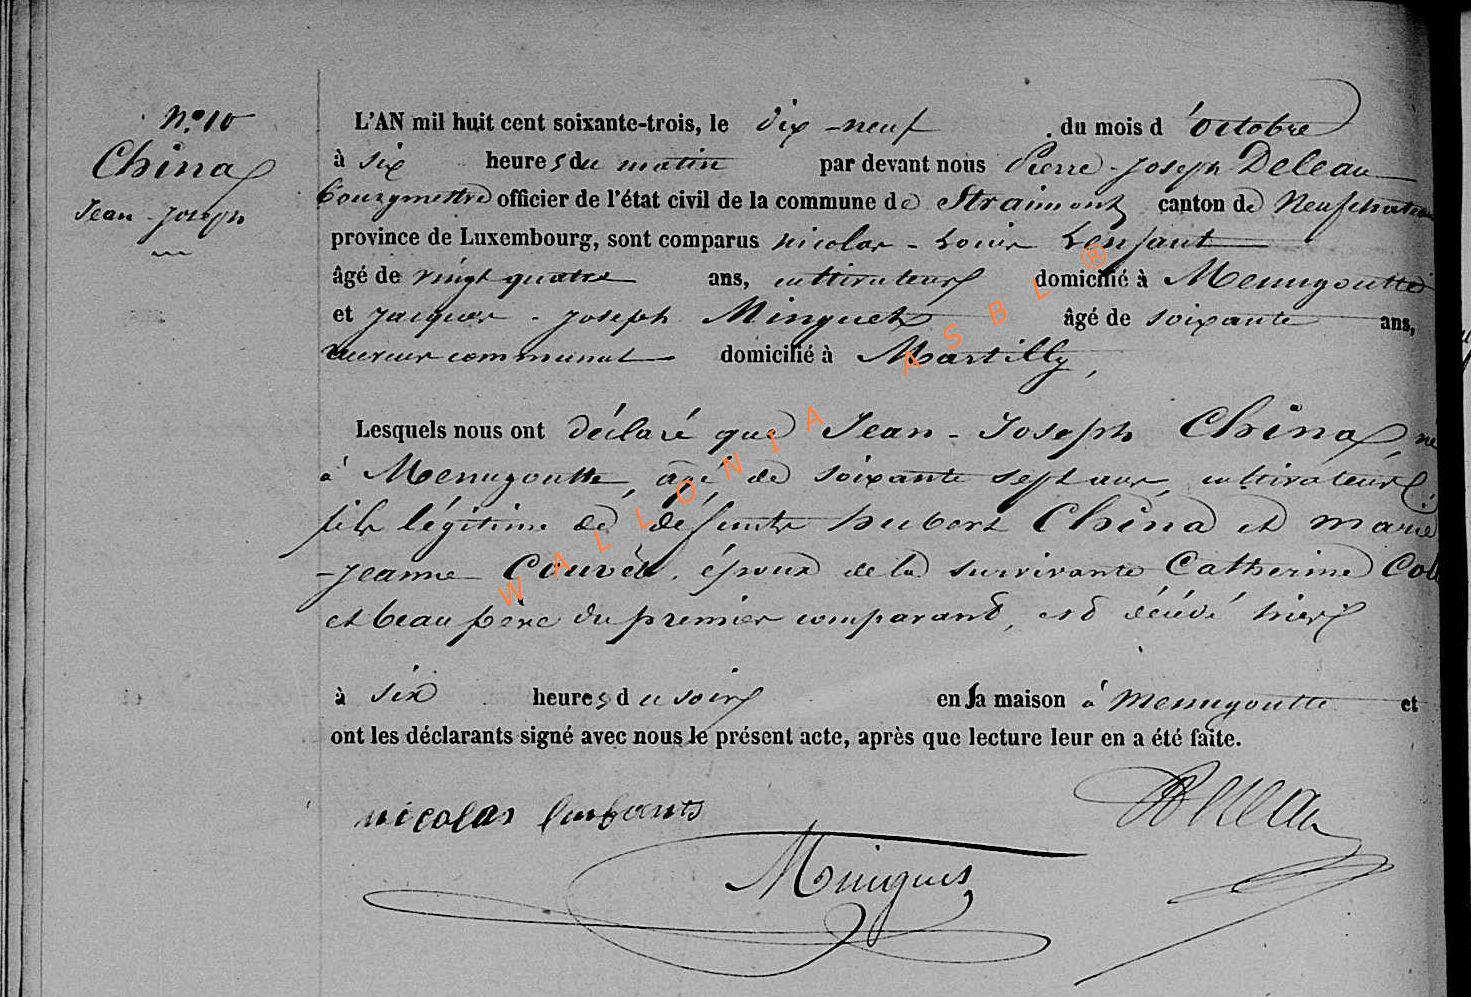 N° 10
China
Jean-Joseph
L'AN mil huit cent soixante-trois, le dix-neuf du mois d'octobre
à six heures du matin par devant nous Pierre-Joseph Deleau
bourgmestre officier de l'état civil de la commune de Straimont canton de Neufchateau
province de Luxembourg, sont comparus nicolas-Louis Lenfant
âgé de vingt quatre ans, cultivateur domicilié à Menugoutte
et Jacques-Joseph Minguet âgé de soixante ans,
receveur communal domicilié à Martilly,
Lesquels nous ont déclaré que Jean-Joseph China, né
à Menugoutte, âgé de soixante sept ans, cultivateur,
fils légitime de défunts hubert China et marie
-jeanne, époux de la survivante Catherine
et beau père du premier comparant, est décédé hier
à six heures du soir en sa maison à menugoutte et
ont les déclarants signé avec nous le présent acte, après que lecture leur en a été faite.
nicolas
Deleau
WALLONIA ASBL ®